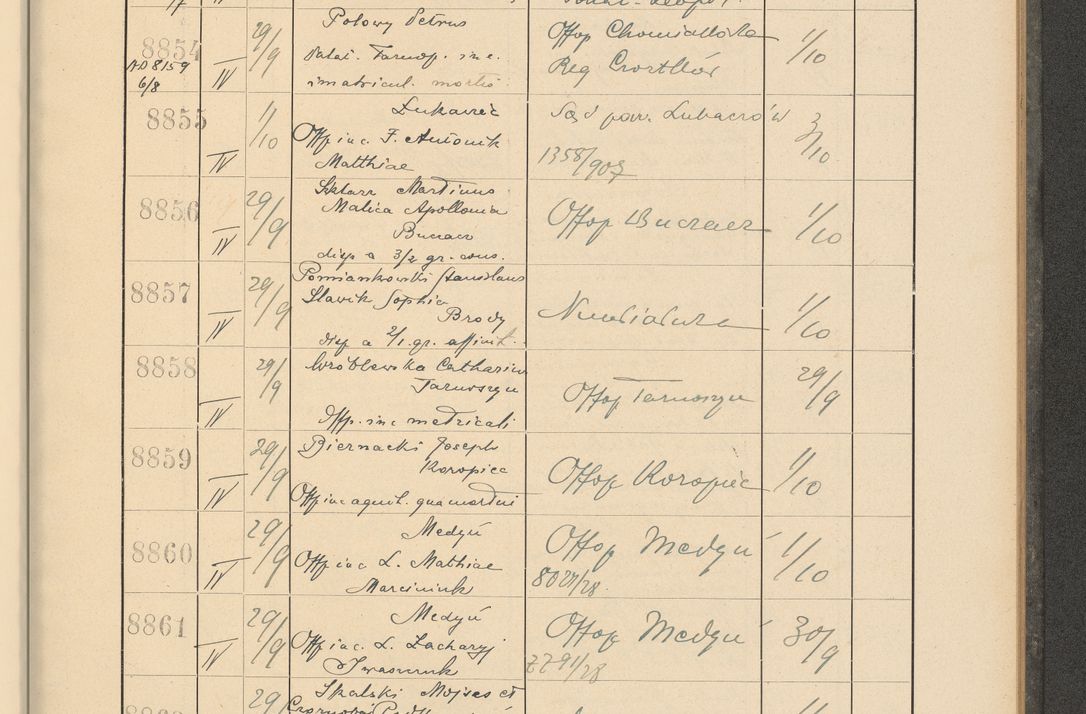 8854
29/9
Polowy Petrus
Offop
1/10
AD 8159
6/8
IV
Palat. Tarnop. inc.
imatricul. mortis
Reg Czortków
8855
1/10
Lukawiec
Sąd pow. Lubaczów
3/10
IV
Offp inc. F. Antonik
Matthiae
1358/907
8856
29/9
Martinus
Malica Apollonia
Offop Buczacz
1/10
IV
Buczacz
disp a 3/2 gr. cons.
8857
29/9
Pomiankowski Stanislaus
Slavik Sophia
Nunciatura
1/10
IV
Brody
disp a 2/1 gr. affinit.
8858
29/9
Wróblewska Catharina
29/9
Offop
IV
Offp. inc metricali
8859
29/9
Biernacki Joseph
Koropiec
Offop Koropiec
1/10
IV
Offp inc
8860
29/9
Medyń
Offop Medyń
1/10
IV
Offp inc L. Mathiae
Marciniuk
8027/28
8861
29/9
Medyń
Offop Medyń
30/9
IV
Offp inc. L. Zacharyj
7791/28
29
Skalski Mojses et